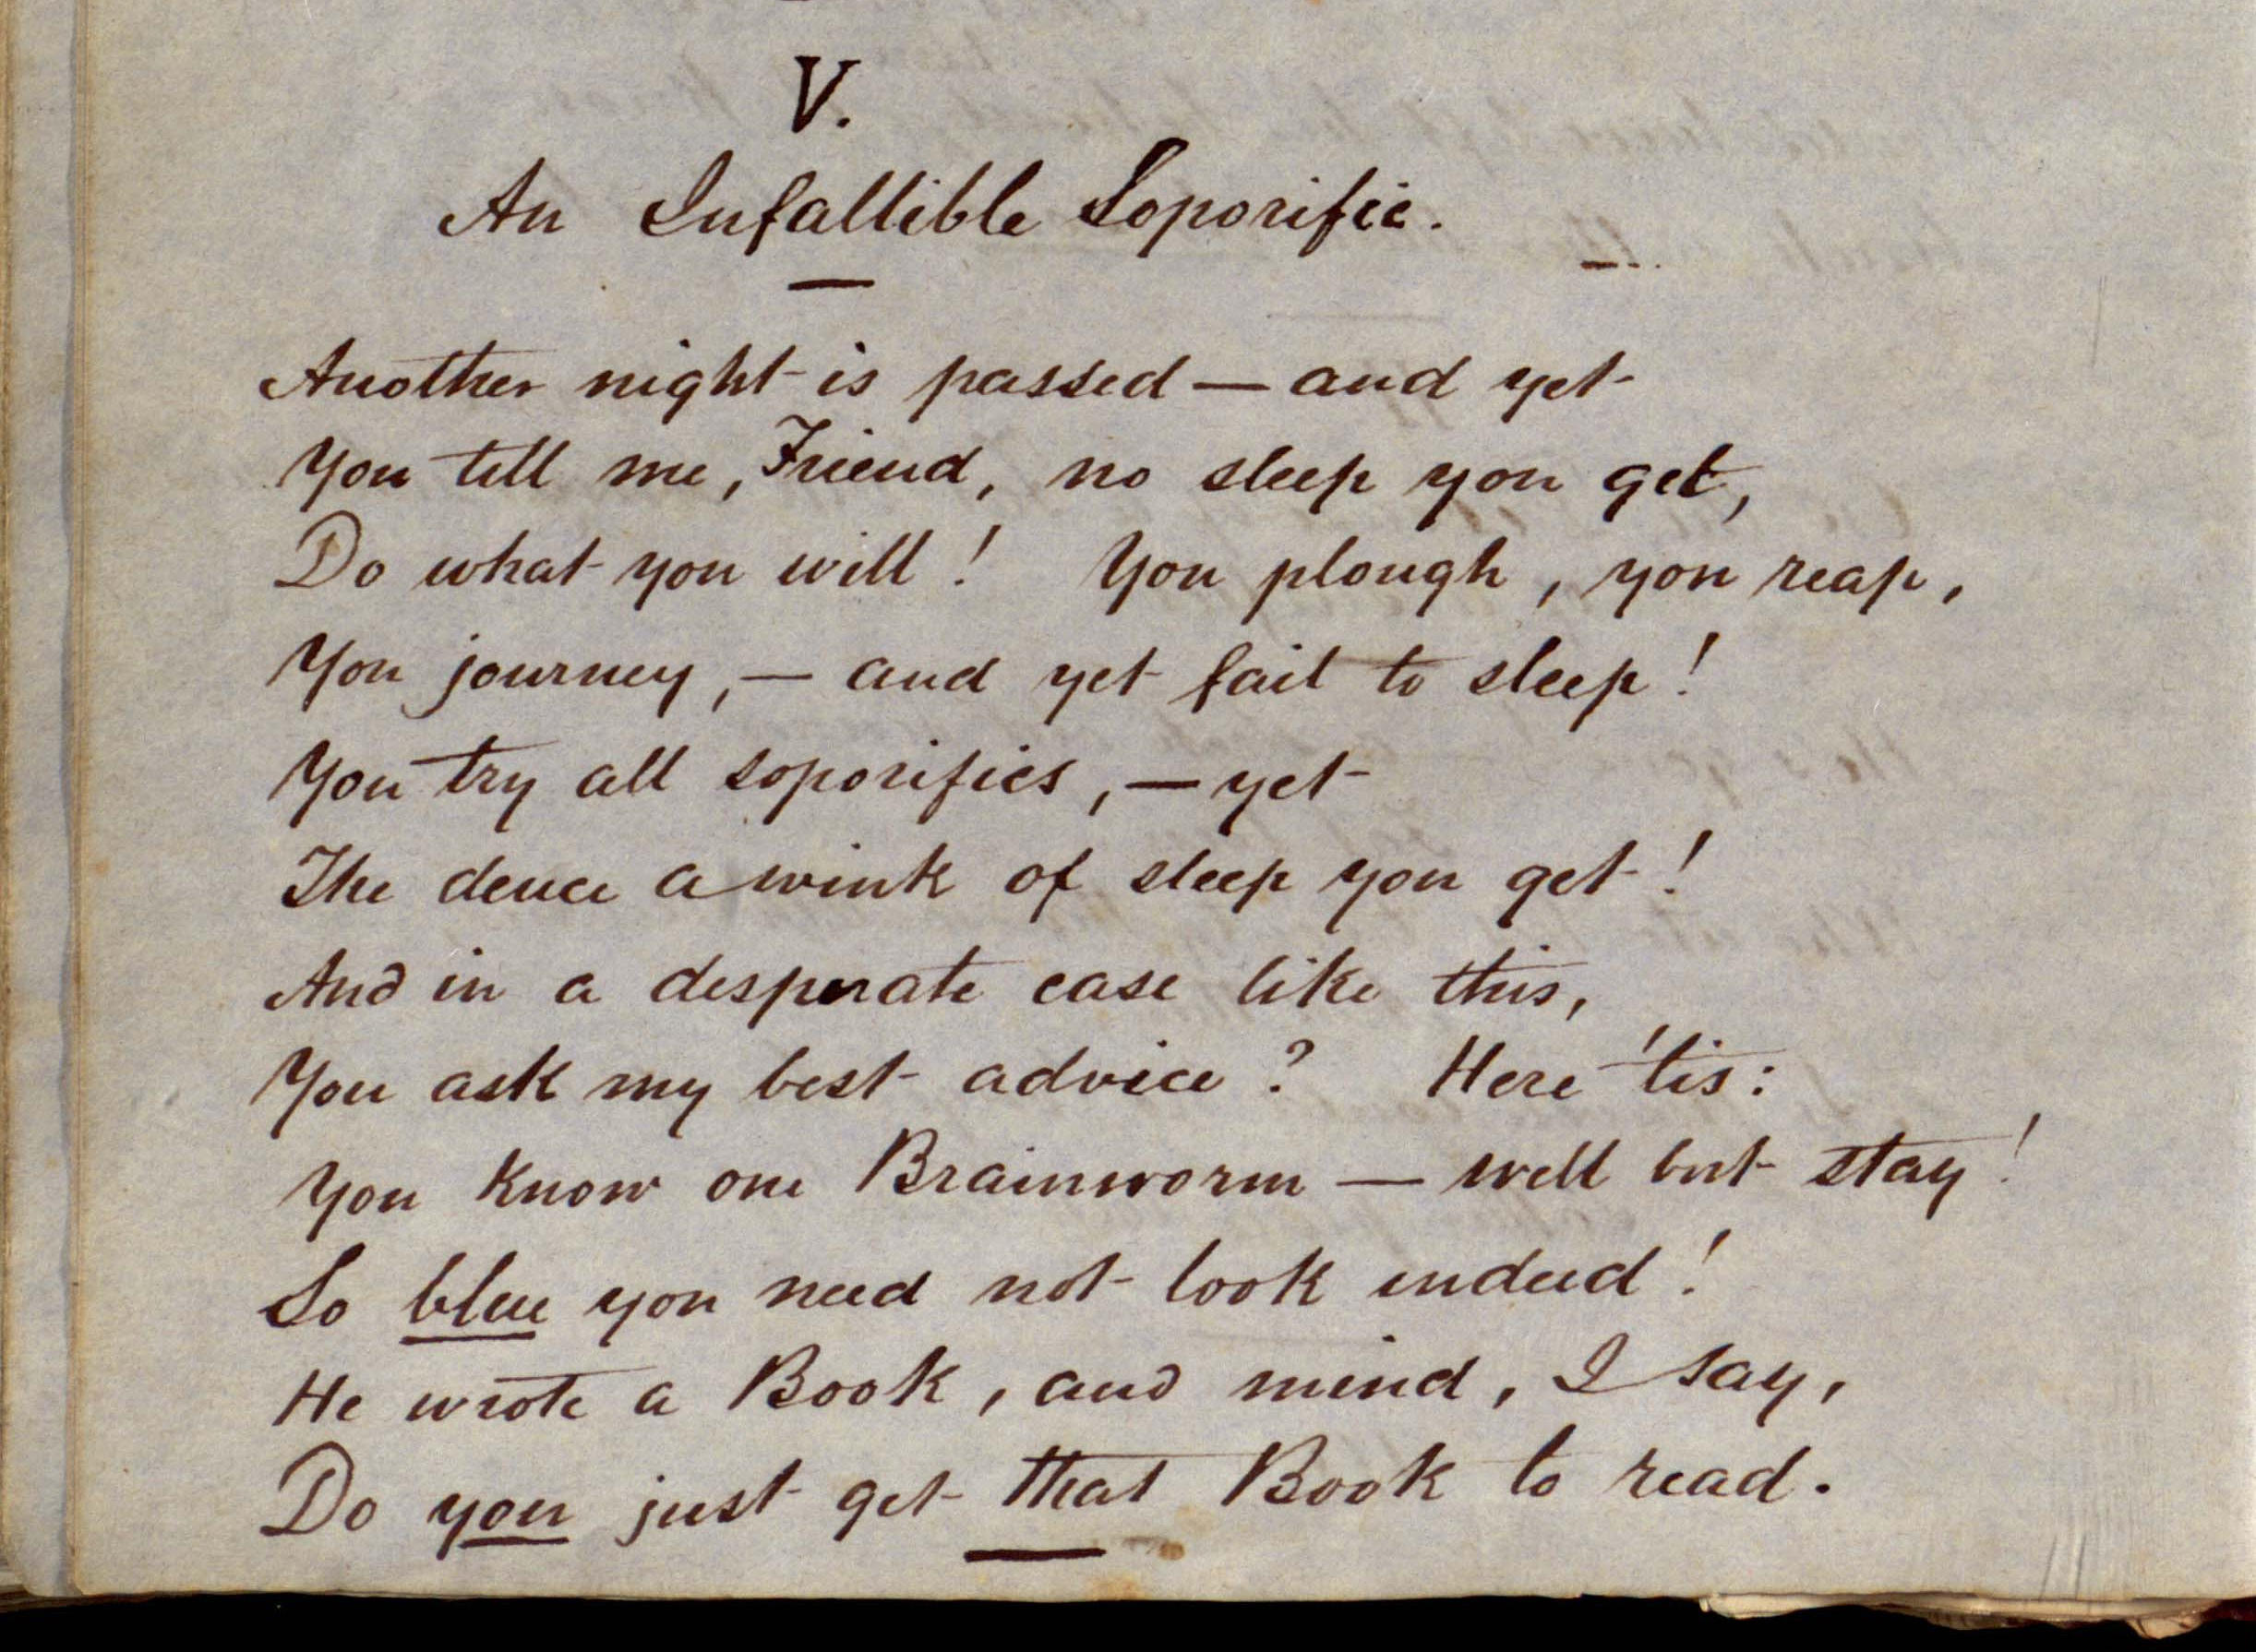 V.
An Infallible Soporific.
Another night is passed — and yet
You tell me, Friend, no sleep you get,
Do what you will! You plough, you reap,
You journey, — and yet fail to sleep!
You try all soporifics, — yet
The deuce a wink of sleep you get!
And in a desperate case like this,
You ask my best advice? Here 'tis:
You know one Brainworm — well but stay!
So blue you need not look indeed!
He wrote a Book, and mind, I say,
Do you just get that Book to read.